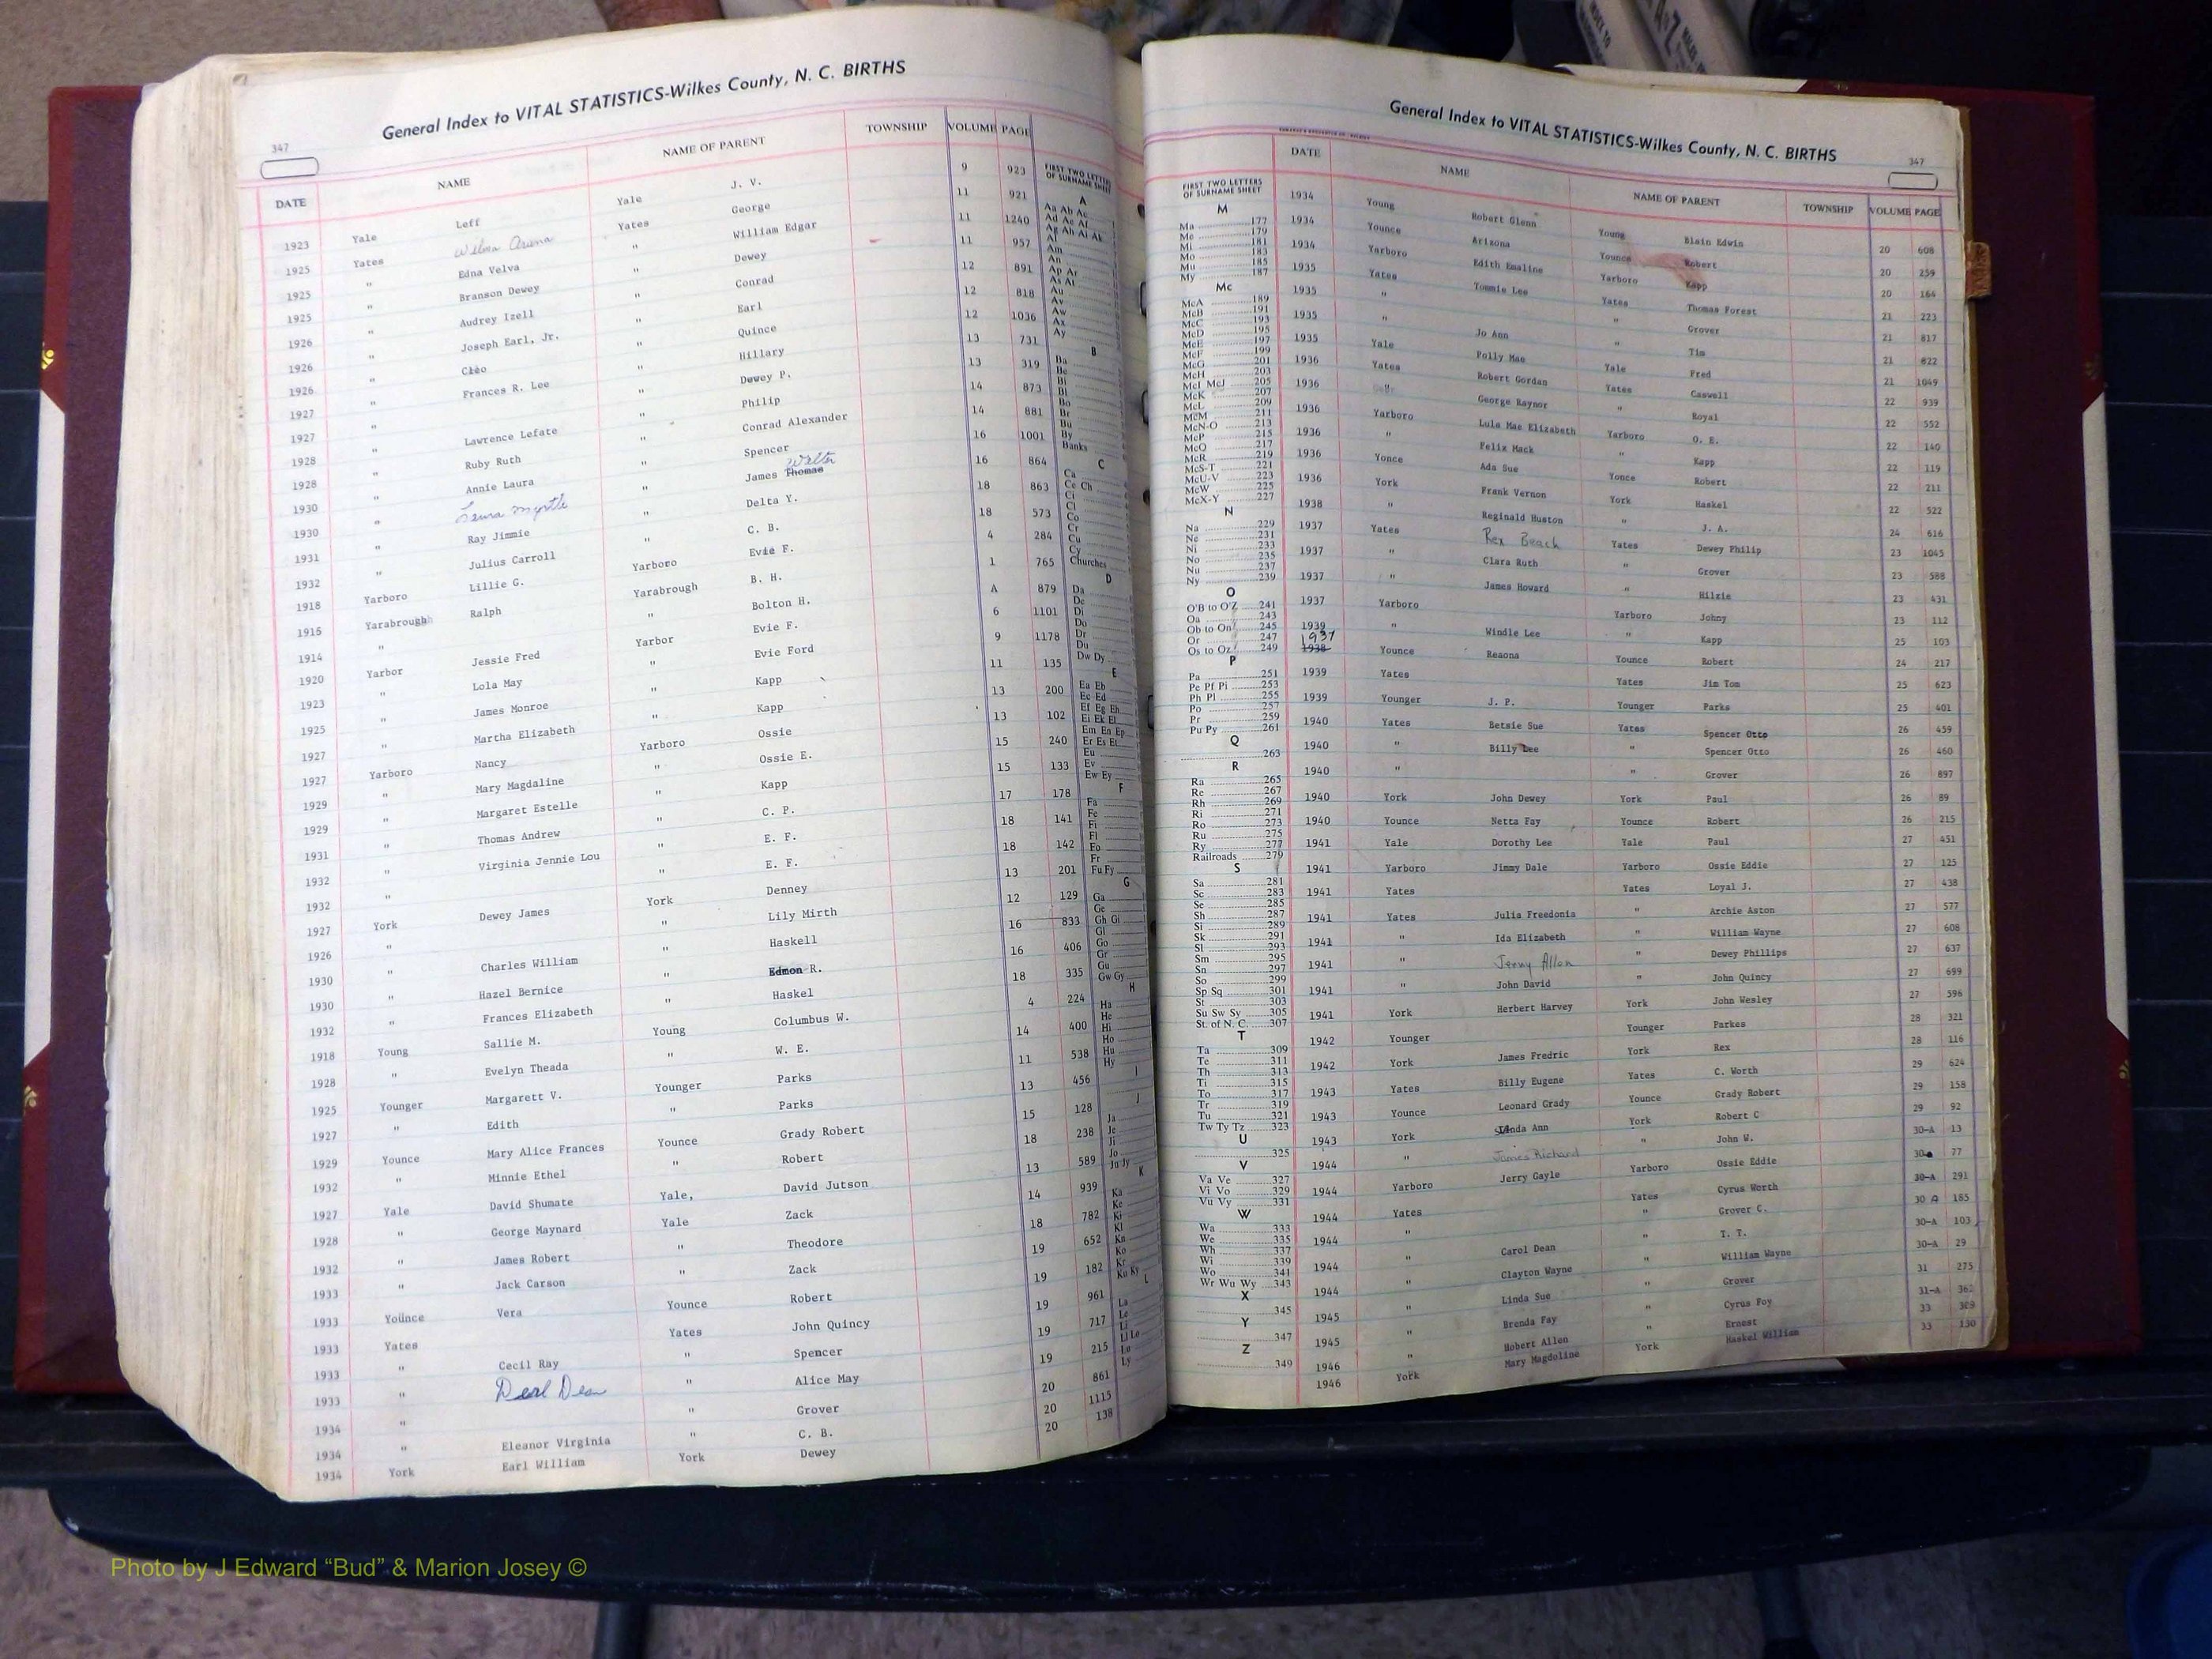 General Index to VITAL STATISTICS-Wilkes County, N. C. BIRTHS
347
DATE NAME NAME OF PARENT TOWNSHIP VOLUME PAGE
1923 Yale Leff Yale J. V. 9 923
1925 Yates Wilma Arena Yates George 11 921
1925 " Edna Velva " William Edgar 11 1240
1925 " Branson Dewey " Dewey 11 957
1926 " Audrey Izell " Conrad 12 891
1926 " Joseph Earl, Jr. " Earl 12 818
1926 " Cleo " Quince 12 1036
1927 " Frances R. Lee " Hillary 13 731
1927 " " Dewey P. 13 319
1928 " Lawrence Lefate " Philip 14 873
1928 " Ruby Ruth " Conrad Alexander 14 881
1930 " Annie Laura " Spencer 16 1001
1930 " Laura Myrtle " James Thomas Walter 16 864
1931 " Ray Jimmie " Delta Y. 18 863
1932 " Julius Carroll " C. B. 18 573
1918 Yarboro Lillie G. Yarboro Evie F. 4 284
1916 Yarabrough Ralph Yarabrough B. H. 1 765
1914 " " Bolton H. A 879
1920 Yarbor Jessie Fred Yarbor Evie F. 6 1101
1923 " Lola May " Evie Ford 9 1178
1925 " James Monroe " Kapp 11 135
1927 " Martha Elizabeth " Kapp 13 200
1927 Yarboro Nancy Yarboro Ossie 13 102
1929 " Mary Magdaline " Ossie E. 15 240
1929 " Margaret Estelle " Kapp 15 133
1931 " Thomas Andrew " C. P. 17 178
1932 " Virginia Jennie Lou " E. F. 18 141
1932 " " E. F. 18 142
1927 York Dewey James York Denney 13 201
1926 " " Lily Mirth 12 129
1930 " Charles William " Haskell 16 833
1930 " Hazel Bernice " Edmon R. 16 406
1932 " Frances Elizabeth " Haskel 18 335
1918 Young Sallie M. Young Columbus W. 4 224
1928 " Evelyn Theada " W. E. 14 400
1925 Younger Margarett V. Younger Parks 11 538
1927 " Edith " Parks 13 456
1929 Younce Mary Alice Frances Younce Grady Robert 15 128
1932 " Minnie Ethel " Robert 18 238
1927 Yale David Shumate Yale, David Jutson 13 589
1928 " George Maynard Yale Zack 14 939
1932 " James Robert " Theodore 18 782
1933 " Jack Carson " Zack 19 652
1933 Younce Vera Younce Robert 19 182
1933 Yates Yates John Quincy 19 961
1933 " Cecil Ray " Spencer 19 717
1933 " Dearl Dean " Alice May 19 215
1934 " " Grover 20 861
1934 " Eleanor Virginia " C. B. 20 1115
1934 York Earl William York Dewey 20 138
FIRST TWO LETTERS OF SURNAME SHEET
A
Aa Ab Ac
Ad Ae Af
Ag Ah Ai Ak
Al
Am
An
Ap Ar
As At
Au
Av
Aw
Ax
Ay
B
Ba
Be
Bi
Bl
Bo
Br
Bu
By
Banks
C
Ca
Ce Ch
Ci
Cl
Co
Cr
Cu
Cy
Churches
D
Da
De
Di
Do
Dr
Du
Dw Dy
E
Ea Eb
Ec Ed
Ef Eg Eh
Ei Ek El
Em En Ep
Er Es Et
Eu
Ev
Ew Ey
F
Fa
Fe
Fi
Fl
Fo
Fr
Fu Fy
G
Ga
Ge
Gh Gi
Gl
Go
Gr
Gu
Gw Gy
H
Ha
He
Hi
Ho
Hu
Hy
I
J
Ja
Je
Ji
Jo
Ju Jy
K
Ka
Ke
Ki
Kl
Kn
Ko
Kr
Ku Ky
L
La
Le
Li
Ll Lo
Lu
Ly
General Index to VITAL STATISTICS-Wilkes County, N. C. BIRTHS
347
FIRST TWO LETTERS OF SURNAME SHEET
M
Ma 177
Me 179
Mi 181
Mo 183
Mu 185
My 187
Mc
McA 189
McB 191
McC 193
McD 195
McE 197
McF 199
McG 201
McH 203
McI McJ 205
McK 207
McL 209
McM 211
McN-O 213
McP 215
McQ 217
McR 219
McS-T 221
McU-V 223
McW 225
McX-Y 227
N
Na 229
Ne 231
Ni 233
No 235
Nu 237
Ny 239
O
O'B to O'Z 241
Oa 243
Ob to On 245
Or 247
Os to Oz 249
P
Pa 251
Pe Pf Pi 253
Ph Pl 255
Po 257
Pr 259
Pu Py 261
Q
263
R
Ra 265
Re 267
Rh 269
Ri 271
Ro 273
Ru 275
Ry 277
Railroads 279
S
Sa 281
Sc 283
Se 285
Sh 287
Si 289
Sk 291
Sl 293
Sm 295
Sn 297
So 299
Sp Sq 301
St 303
Su Sw Sy 305
St. of N. C. 307
T
Ta 309
Te 311
Th 313
Ti 315
To 317
Tr 319
Tu 321
Tw Ty Tz 323
U
325
V
Va Ve 327
Vi Vo 329
Vu Vy 331
W
Wa 333
We 335
Wh 337
Wi 339
Wo 341
Wr Wu Wy 343
X
345
Y
347
Z
349
DATE NAME NAME OF PARENT TOWNSHIP VOLUME PAGE
1934 Young Robert Glenn Young Blain Edwin 20 608
1934 Younce Arizona Younce Robert 20 259
1934 Yarboro Edith Emaline Yarboro Kapp 20 164
1935 Yates Tommie Lee Yates Thomas Forest 21 223
1935 " " Grover 21 817
1935 " Jo Ann " Tim 21 822
1935 Yale Polly Mae Yale Fred 21 1049
1936 Yates Robert Gordan Yates Caswell 22 939
1936 George Raynor " Royal 22 552
1936 Yarboro Lula Mae Elizabeth Yarboro O. E. 22 140
1936 " Felix Mack " Kapp 22 119
1936 Yonce Ada Sue Yonce Robert 22 211
1936 York Frank Vernon York Haskel 22 522
1938 " Reginald Huston " J. A. 24 616
1937 Yates Rex Beach Yates Dewey Philip 23 1045
1937 " Clara Ruth " Grover 23 588
1937 " James Howard " Hilrie 23 431
1937 Yarboro Yarboro Johny 23 112
1939 " Windle Lee " Kapp 25 103
1937 1938 Younce Reaona Younce Robert 24 217
1939 Yates Yates Jim Tom 25 623
1939 Younger J. P. Younger Parks 25 401
1940 Yates Betsie Sue Yates Spencer Otto 26 459
1940 " Billy Lee " Spencer Otto 26 460
1940 " " Grover 26 897
1940 York John Dewey York Paul 26 89
1940 Younce Netta Fay Younce Robert 26 215
1941 Yale Dorothy Lee Yale Paul 27 451
1941 Yarboro Jimmy Dale Yarboro Ossie Eddie 27 125
1941 Yates Yates Loyal J. 27 438
1941 Yates Julia Freedonia " Archie Aston 27 577
1941 " Ida Elizabeth " William Wayne 27 608
1941 " Jerry Allen " Dewey Phillips 27 637
1941 " John David " John Quincy 27 699
1941 York Herbert Harvey York John Wesley 27 596
1942 Younger Younger Parkes 28 321
1942 York James Fredric York Rex 28 116
1943 Yates Billy Eugene Yates C. Worth 29 624
1943 Younce Leonard Grady Younce Grady Robert 29 158
1943 York Linda Ann York Robert C 29 92
1944 " James Richard " John W. 30-A 13
1944 Yarboro Jerry Gayle Yarboro Ossie Eddie 30 77
1944 Yates Yates Cyrus Worth 30-A 291
1944 " " Grover C. 30 A 185
1944 " Carol Dean " T. T. 30-A 103
1945 " Clayton Wayne " William Wayne 30-A 29
1945 " Linda Sue " Grover 31 275
1946 " Brenda Fay " Cyrus Foy 31-A 362
" Hobert Allen " Ernest 33 309
1946 York Mary Magdoline York Haskel William 33 130
Photo by J Edward “Bud” & Marion Josey ©